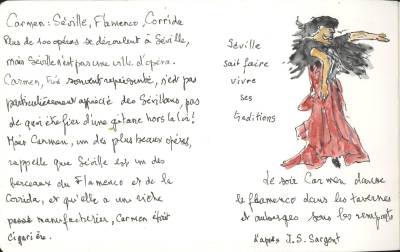 Carmen: Séville, Flamenco, Corrida
Plus de 100 opéras se déroulent à Séville,
mais Séville n'est pas une ville d'opéra.
Carmen, très souvent représenté, n'est pas
particulièrement apprécié des Sévillans, pas
de quoi être fier d'une gitane hors la loi!
Mais Carmen, un des plus beaux opéras,
rappelle que Séville est un des
berceaux du Flamenco et de la
Corrida, et qu'elle a un riche
passé manufacturier, Carmen était
cigarière.
Séville
sait faire
vivre
ses
traditions
Le soir Carmen danse
le flamenco dans les tavernes
et auberges sous les remparts
d'après J.S. Sargent